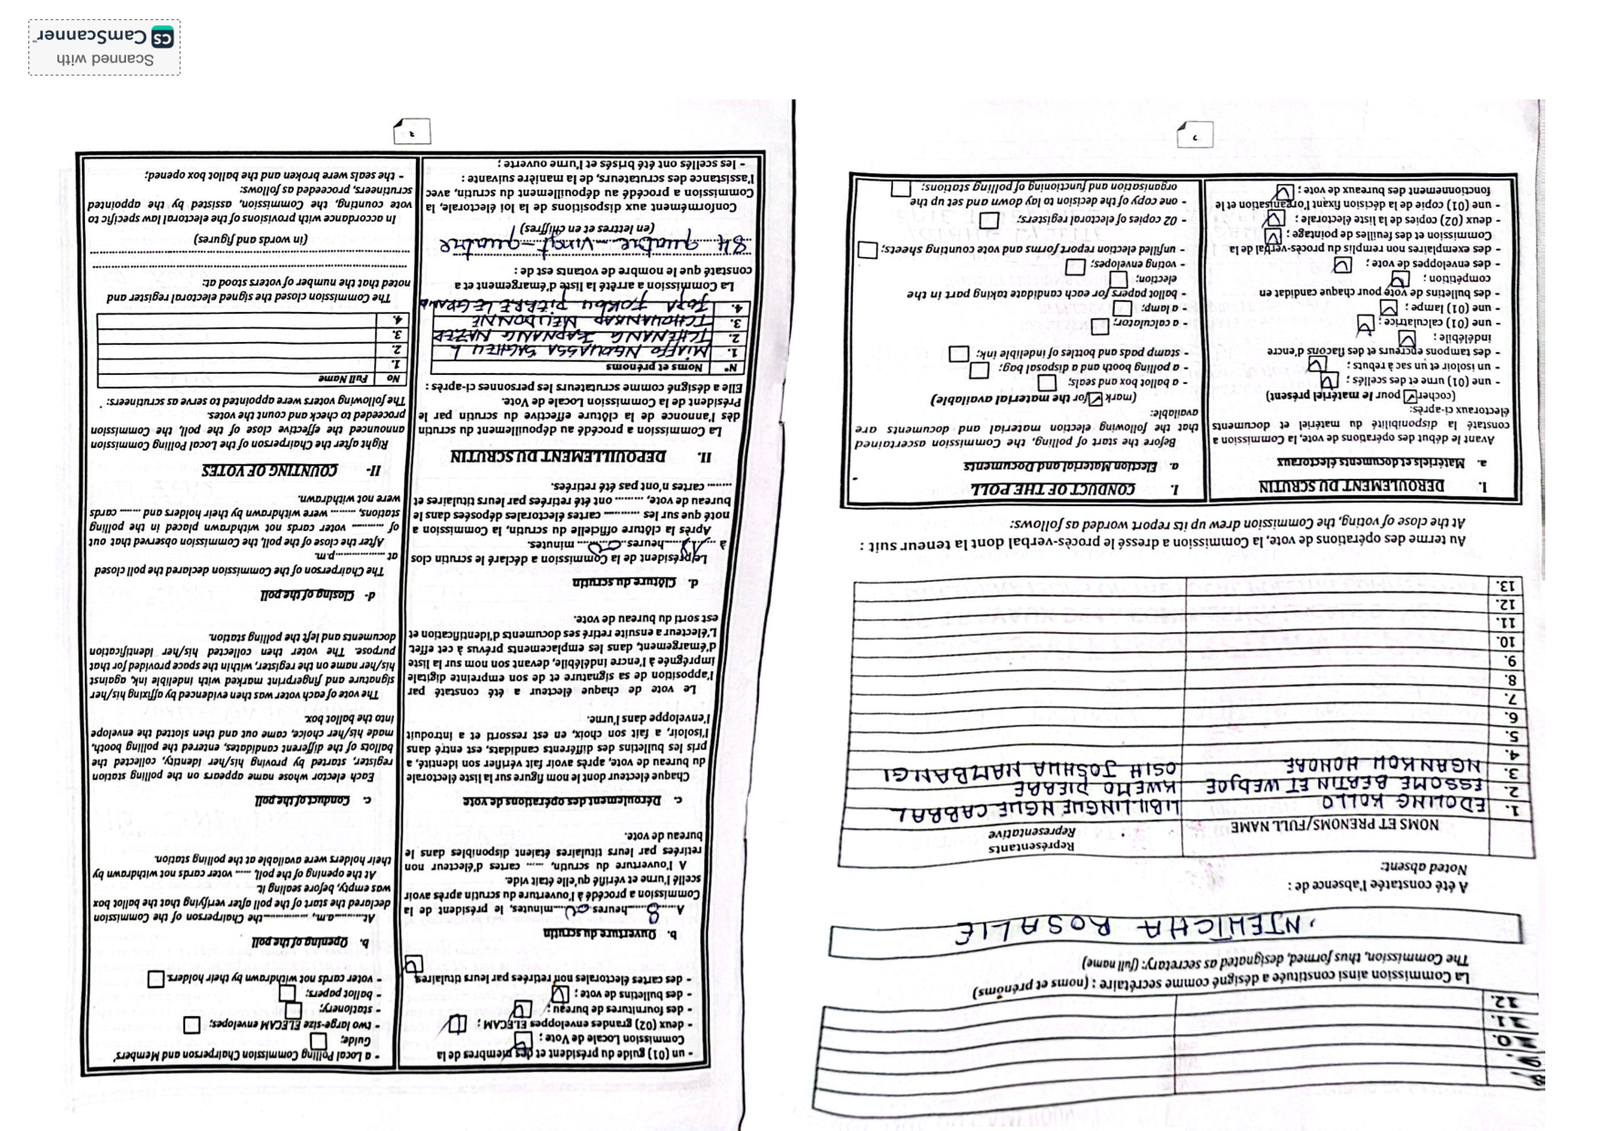 9.
10.
11.
12.
La Commission ainsi constituée a désigné comme secrétaire : (noms et prénoms)
The Commission, thus formed, designated as secretary: (full name)
NJEHICHA ROSALIE
A été constatée l'absence de :
Noted absent:
NOMS ET PRENOMS/FULL NAME
Représentants
Representative
1. EDOLING KOLLO LIBILLINGUE NGUE CABRAL
2. ESSOME BERTIN ET WEDJOE KWEMO PIERRE
3. NGANKOU HONORE OSIH JOSHUA NAMBANGI
4.
5.
6.
7.
8.
9.
10.
11.
12.
13.
Au terme des opérations de vote, la Commission a dressé le procès-verbal dont la teneur suit :
At the close of voting, the Commission drew up its report worded as follows:
I. DEROULEMENT DU SCRUTIN
a. Matériels et documents électoraux
Avant le début des opérations de vote, la Commission a
constaté la disponibilité du matériel et documents
électoraux ci-après:
(cocher pour le matériel présent)
- une (01) urne et des scellés ;
- un isoloir et un sac à rebuts ;
- des tampons encreurs et des flacons d'encre
indélébile;
- une (01) calculatrice ;
- une (01) lampe ;
- des bulletins de vote pour chaque candidat en
compétition ;
- des enveloppes de vote ;
- des exemplaires non remplis du procès-verbal de la
Commission et des feuilles de pointage ;
- deux (02) copies de la liste électorale ;
- une (01) copie de la décision fixant l'organisation et le
fonctionnement des bureaux de vote ;
I. CONDUCT OF THE POLL
a. Election Material and Documents
Before the start of polling, the Commission ascertained
that the following election material and documents are
available:
(mark for the material available)
- a ballot box and seals;
- a polling booth and a disposal bag;
- stamp pads and bottles of indelible ink;
- a calculator;
- a lamp;
- ballot papers for each candidate taking part in the
election;
- voting envelopes;
- unfilled election report forms and vote counting sheets;
- 02 copies of electoral registers;
- one copy of the decision to lay down and set up the
organisation and functioning of polling stations;
2
- un (01) guide du président et des membres de la
Commission Locale de Vote ;
- deux (02) grandes enveloppes ELECAM ;
- des fournitures de bureau ;
- des bulletins de vote ;
- des cartes électorales non retirées par leurs titulaires.
b. Ouverture du scrutin
A 8 heures 00 minutes, le président de la
Commission a procédé à l'ouverture du scrutin après avoir
scellé l'urne et vérifié qu'elle était vide.
A l'ouverture du scrutin, ...... cartes d'électeur non
retirées par leurs titulaires étaient disponibles dans le
bureau de vote.
c. Déroulement des opérations de vote
Chaque électeur dont le nom figure sur la liste électorale
du bureau de vote, après avoir fait vérifier son identité, a
pris les bulletins des différents candidats, est entré dans
l'isoloir, a fait son choix, en est ressorti et a introduit
l'enveloppe dans l'urne.
Le vote de chaque électeur a été constaté par
l'apposition de sa signature et de son empreinte digitale
imprégnée à l'encre indélébile, devant son nom sur la liste
d'émargement, dans les emplacements prévus à cet effet.
L'électeur a ensuite retiré ses documents d'identification et
est sorti du bureau de vote.
d. Clôture du scrutin
Le président de la Commission a déclaré le scrutin clos
à 18 heures 00 minutes.
Après la clôture officielle du scrutin, la Commission a
noté que sur les .......... cartes électorales déposées dans le
bureau de vote, ........ ont été retirées par leurs titulaires et
....... cartes n'ont pas été retirées.
II. DEPOUILLEMENT DU SCRUTIN
La Commission a procédé au dépouillement du scrutin
dès l'annonce de la clôture effective du scrutin par le
Président de la Commission Locale de Vote.
Elle a désigné comme scrutateurs les personnes ci-après :
N° Noms et prénoms
1. MIAFFO NGOUASSA
2. TCHENANG
3. TCHOUANKAP DIEUDONNE
4. FOKOU PIERRE LEGRAND
La Commission a arrêté la liste d'émargement et a
constaté que le nombre de votants est de :
84 quatre-vingt-quatre
(en lettres et en chiffres)
Conformément aux dispositions de la loi électorale, la
Commission a procédé au dépouillement du scrutin, avec
l'assistance des scrutateurs, de la manière suivante :
- les scellés ont été brisés et l'urne ouverte ;
- a Local Polling Commission Chairperson and Members'
Guide;
- two large-size ELECAM envelopes;
- stationery;
- ballot papers;
- voter cards not withdrawn by their holders.
b. Opening of the poll
At..........a.m, .............the Chairperson of the Commission
declared the start of the poll after verifying that the ballot box
was empty, before sealing it.
At the opening of the poll, ..... voter cards not withdrawn by
their holders were available at the polling station.
c. Conduct of the poll
Each elector whose name appears on the polling station
register, started by proving his/her identity, collected the
ballots of the different candidates, entered the polling booth,
made his/her choice, came out and then slotted the envelope
into the ballot box.
The vote of each voter was then evidenced by affixing his/her
signature and fingerprint marked with indelible ink, against
his/her name on the register, within the space provided for that
purpose. The voter then collected his/her identification
documents and left the polling station.
d- Closing of the poll
The Chairperson of the Commission declared the poll closed
at ..................p.m.
After the close of the poll, the Commission observed that out
of .......... voter cards not withdrawn placed in the polling
stations, ........ were withdrawn by their holders and ...... cards
were not withdrawn.
II- COUNTING OF VOTES
Right after the Chairperson of the Local Polling Commission
announced the effective close of the poll, the Commission
proceeded to check and count the votes.
The following voters were appointed to serve as scrutineers:
No Full Name
1.
2.
3.
4.
The Commission closed the signed electoral register and
noted that the number of voters stood at:
(in words and figures)
In accordance with provisions of the electoral law specific to
vote counting, the Commission, assisted by the appointed
scrutineers, proceeded as follows:
- the seals were broken and the ballot box opened;
3
Scanned with
CS CamScanner